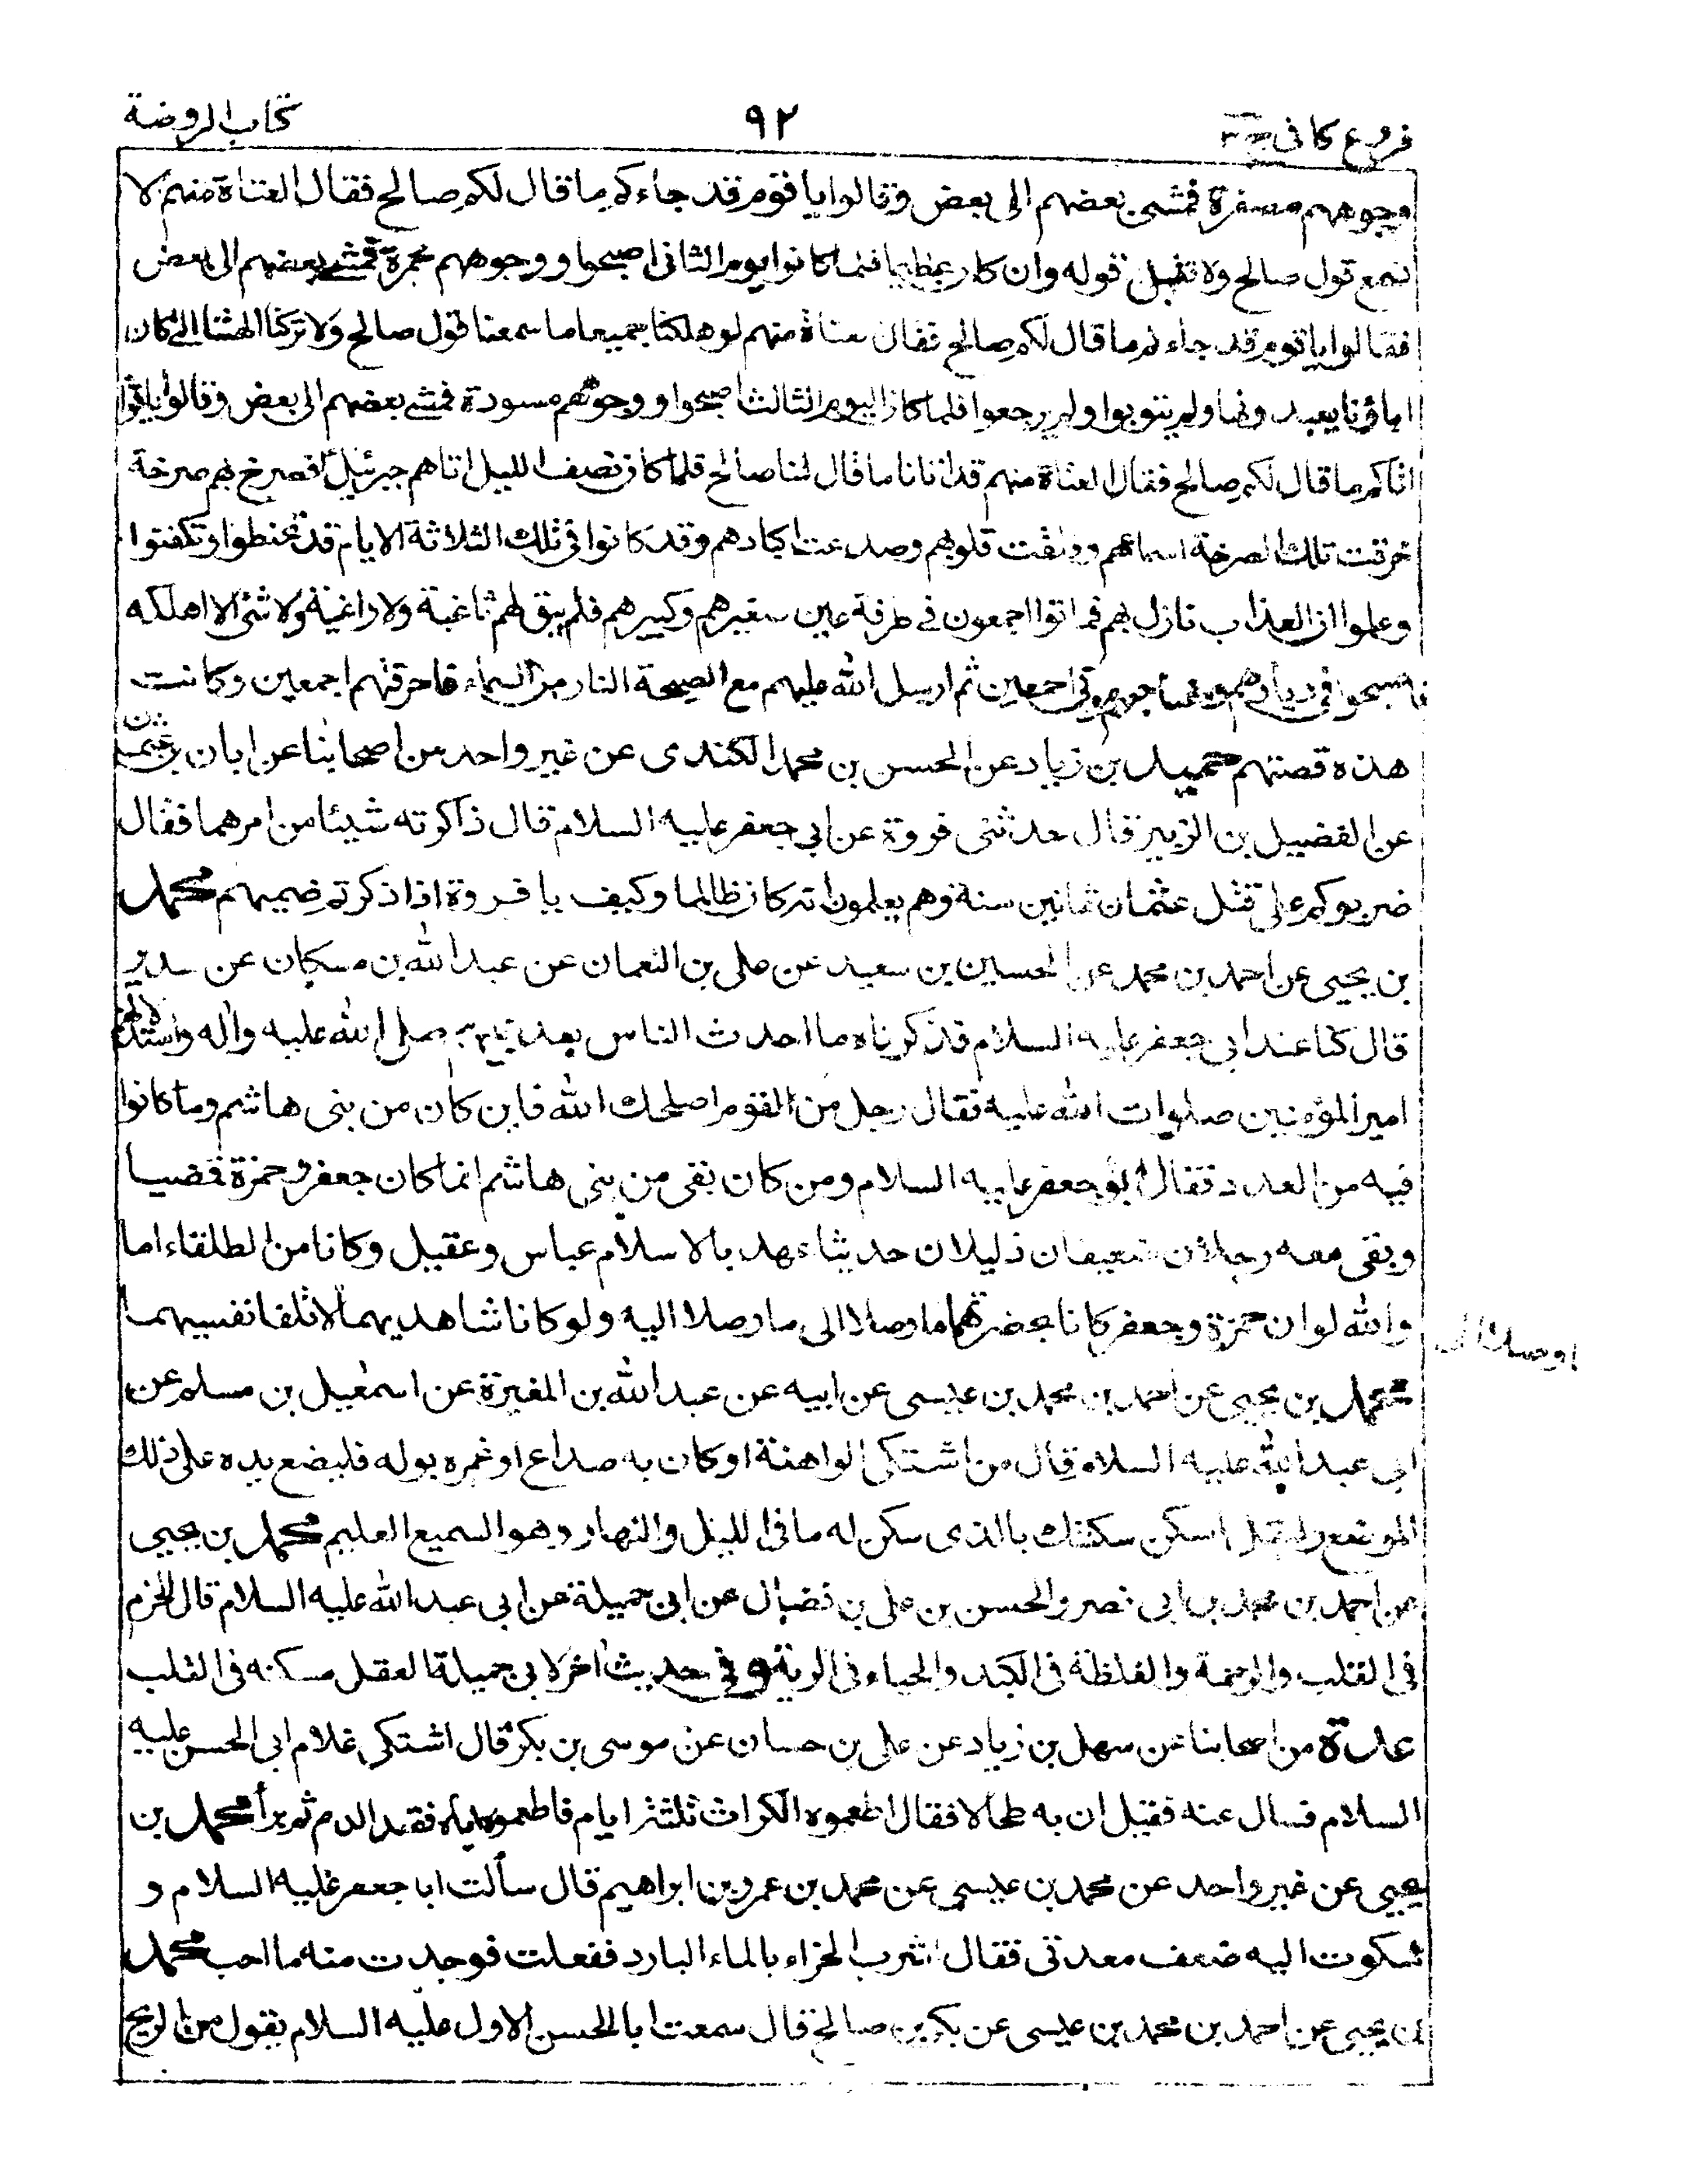 فروع كافى ج ٣ ٩٢ كتاب الروضة
وجوههم مصفرة فمشى بعضهم الى بعض وقالوا يا قوم قد جاءكم ما قال لكم صالح فقال العتاة منهم لا
نسمع قول صالح ولا نقبل قوله وان كان عظيما فلما كانوا يوم الثانى اصبحوا ووجوههم محمرة فمشى بعضهم الى بعض
فقالوا يا قوم قد جاءكم ما قال لكم صالح فقال عتاة منهم لو هلكنا جميعا ما سمعنا قول صالح ولا تركنا الهتنا التى كان
اباؤنا يعبدونها ولم يتوبوا ولم يرجعوا فلما كان اليوم الثالث اصبحوا ووجوههم مسودة فمشى بعضهم الى بعض وقالوا يا قوم
اتاكم ما قال لكم صالح فقال العتاة منهم قد اتانا ما قال لنا صالح فلما كان نصف الليل اتاهم جبرئيل فصرخ بهم صرخة
خرقت تلك الصرخة اسماعهم وفلقت قلوبهم وصدعت اكبادهم وقد كانوا فى تلك الثلاثة الايام قد تحنطوا وتكفنوا
وعلموا ان العذاب نازل بهم فماتوا اجمعون فى طرفة عين صغيرهم وكبيرهم فلم يبق لهم ثاغية ولا راغية ولا شئ الا اهلكه
فاصبحوا فى ديارهم ومضاجعهم موتى اجمعين ثم ارسل الله عليهم مع الصيحة النار من السماء فاحرقتهم اجمعين وكانت
هذه قصتهم حميد بن زياد عن الحسن بن محمد الكندى عن غير واحد من اصحابنا عن ابان بن عثمن
عن الفضيل بن الزبير قال حدثنى فروة عن ابى جعفر عليه السلام قال ذاكرته شيئا من امرهما فقال
ضربوكم على قتل عثمان ثمانين سنة وهم يعلمون انه كان ظالما وكيف يا فروة اذا ذكرتم ضميهم محمد
بن يحيى عن احمد بن محمد عن الحسين بن سعيد عن على بن النعمان عن عبد الله بن مسكان عن سدير
قال كنا عند ابى جعفر عليه السلام فذكرنا ما احدث الناس بعد نبيهم صلى الله عليه واله واستذلالهم
امير المؤمنين صلوات الله عليه فقال رجل من القوم اصلحك الله فاين كان من بنى هاشم وما كانوا
فيه من العدد فقال ابو جعفر عليه السلام ومن كان بقى من بنى هاشم انما كان جعفر وحمزة فمضيا
وبقى معه رجلان ضعيفان ذليلان حديثا عهد بالاسلام عباس وعقيل وكانا من الطلقاء اما
والله لو ان حمزة وجعفر كانا بحضرتهما ما وصلا الى ما وصلا اليه ولو كانا شاهديهما لاتلفا نفسيهما
محمد بن يحيى عن احمد بن محمد بن عيسى عن ابيه عن عبد الله بن المغيرة عن اسمعيل بن مسلم عن
ابى عبد الله عليه السلام قال من اشتكى الواهنة او كان به صداع او غمره بوله فليضع يده على ذلك
الموضع وليقل اسكن سكنتك بالذى سكن له ما فى الليل والنهار وهو السميع العليم محمد بن يحيى
عن احمد بن محمد بن ابى نصر والحسن بن على بن فضال عن ابى جميلة عن ابى عبد الله عليه السلام قال الحزم
فى القلب والرحمة والغلظة فى الكبد والحياء فى الرية وفى حديث اخر لابى جميلة العقل مسكنه فى القلب
عدة من اصحابنا عن سهل بن زياد عن على بن حسان عن موسى بن بكر قال اشتكى غلام ابى الحسن عليه
السلام فسال عنه فقيل ان به طحالا فقال اطعموه الكراث ثلثة ايام فاطعموه اياه فقعد الدم ثم برأ محمد بن
يحيى عن غير واحد عن محمد بن عيسى عن محمد بن عمرو بن ابراهيم قال سألت ابا جعفر عليه السلام و
شكوت اليه ضعف معدتى فقال اشرب الحزاء بالماء البارد ففعلت فوجدت منه ما احب محمد
بن يحيى عن احمد بن محمد بن عيسى عن بكر بن صالح قال سمعت ابا الحسن الاول عليه السلام يقول من الريح